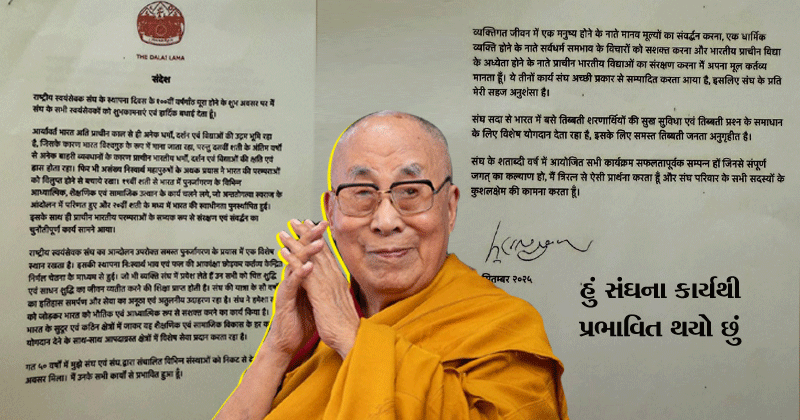 THE DALAI LAMA
संदेश
राष्ट्रीय स्वयंसेवक संघ के स्थापना दिवस के १००वीं वर्षगाँठ पूरा होने के शुभ अवसर पर मैं
संघ के सभी स्वयंसेवकों को शुभकामनाएं एवं हार्दिक बधाई देता हूँ।
आर्यावर्त भारत अति प्राचीन काल से ही अनेक धर्मों, दर्शन एवं विद्याओं की उद्गम भूमि रहा
है, जिसके कारण भारत विश्वगुरु के रूप में माना जाता रहा, परन्तु दसवीं शती के अंतिम वर्षों
से अनेक बाहरी व्यवधानों के कारण प्राचीन भारतीय धर्मों, दर्शनों एवं विद्याओं की क्षति एवं
ह्रास होता रहा। फिर भी असंख्य निस्वार्थ महापुरुषों के अथक प्रयास ने भारत की परम्पराओं
को विलुप्त होने से बचाये रखा। १९वीं शती से भारत में पुनर्जागरण के विभिन्न
आध्यात्मिक, शैक्षणिक एवं सामाजिक उत्थान के कार्य चलने लगे, जो अन्ततोगत्वा स्वराज के
आंदोलन में परिणत हुए और २०वीं शती के मध्य में भारत की स्वाधीनता पुनर्स्थापित हुई।
इसके साथ ही प्राचीन भारतीय परम्पराओं के सम्यक रूप से संरक्षण एवं संवर्द्धन का
चुनौतीपूर्ण कार्य सामने आया।
राष्ट्रीय स्वयंसेवक संघ का आन्दोलन उपरोक्त समस्त पुनर्जागरण के प्रयास में एक विशेष
स्थान रखता है। इसकी स्थापना निःस्वार्थ भाव एवं फल की आकांक्षा छोड़कर कर्तव्य केन्द्रित
निर्मल चेतना के माध्यम से हुई। जो भी व्यक्ति संघ में प्रवेश लेते हैं उन सभी को चित्त शुद्धि
एवं साधन शुद्धि का जीवन व्यतीत करने की शिक्षा प्राप्त होती है। संघ की यात्रा के सौ वर्षों
का इतिहास समर्पण और सेवा का अनूठा एवं अतुलनीय उदाहरण रहा है। संघ ने हमेशा
को जोड़कर भारत को भौतिक एवं आध्यात्मिक रूप से सशक्त करने का कार्य किया है।
भारत के सुदूर एवं कठिन क्षेत्रों में जाकर यह शैक्षणिक एवं सामाजिक विकास के हर
योगदान देने के साथ-साथ आपदाग्रस्त क्षेत्रों में विशेष सेवा प्रदान करता रहा है।
गत ५० वर्षों में मुझे संघ एवं संघ द्वारा संचालित विभिन्न संस्थाओं को निकट से
अवसर मिला। मैं उनके सभी कार्यों से प्रभावित हुआ हूँ।
व्यक्तिगत जीवन में एक मनुष्य होने के नाते मानव मूल्यों का संवर्द्धन करना, एक धार्मिक
व्यक्ति होने के नाते सर्वधर्म समभाव के विचारों को सशक्त करना और भारतीय प्राचीन विद्या
के अध्येता होने के नाते प्राचीन भारतीय विद्याओं का संरक्षण करना मैं अपना मूल कर्तव्य
मानता हूँ। ये तीनों कार्य संघ अच्छी प्रकार से सम्पादित करता आया है, इसलिए संघ के प्रति
मेरी सहज अनुशंसा है।
संघ सदा से भारत में बसे तिब्बती शरणार्थियों की सुख सुविधा एवं तिब्बती प्रश्न के समाधान
के लिए विशेष योगदान देता रहा है, इसके लिए समस्त तिब्बती जनता अनुगृहीत है।
संघ के शताब्दी वर्ष में आयोजित सभी कार्यक्रम सफलतापूर्वक सम्पन्न हों जिनसे संपूर्ण
जगत् का कल्याण हो, मैं त्रिरत्न से ऐसी प्रार्थना करता हूँ और संघ परिवार के सभी सदस्यों के
कुशलक्षेम की कामना करता हूँ।
सितम्बर २०२५
હું સંઘના કાર્યથી
પ્રભાવિત થયો છું